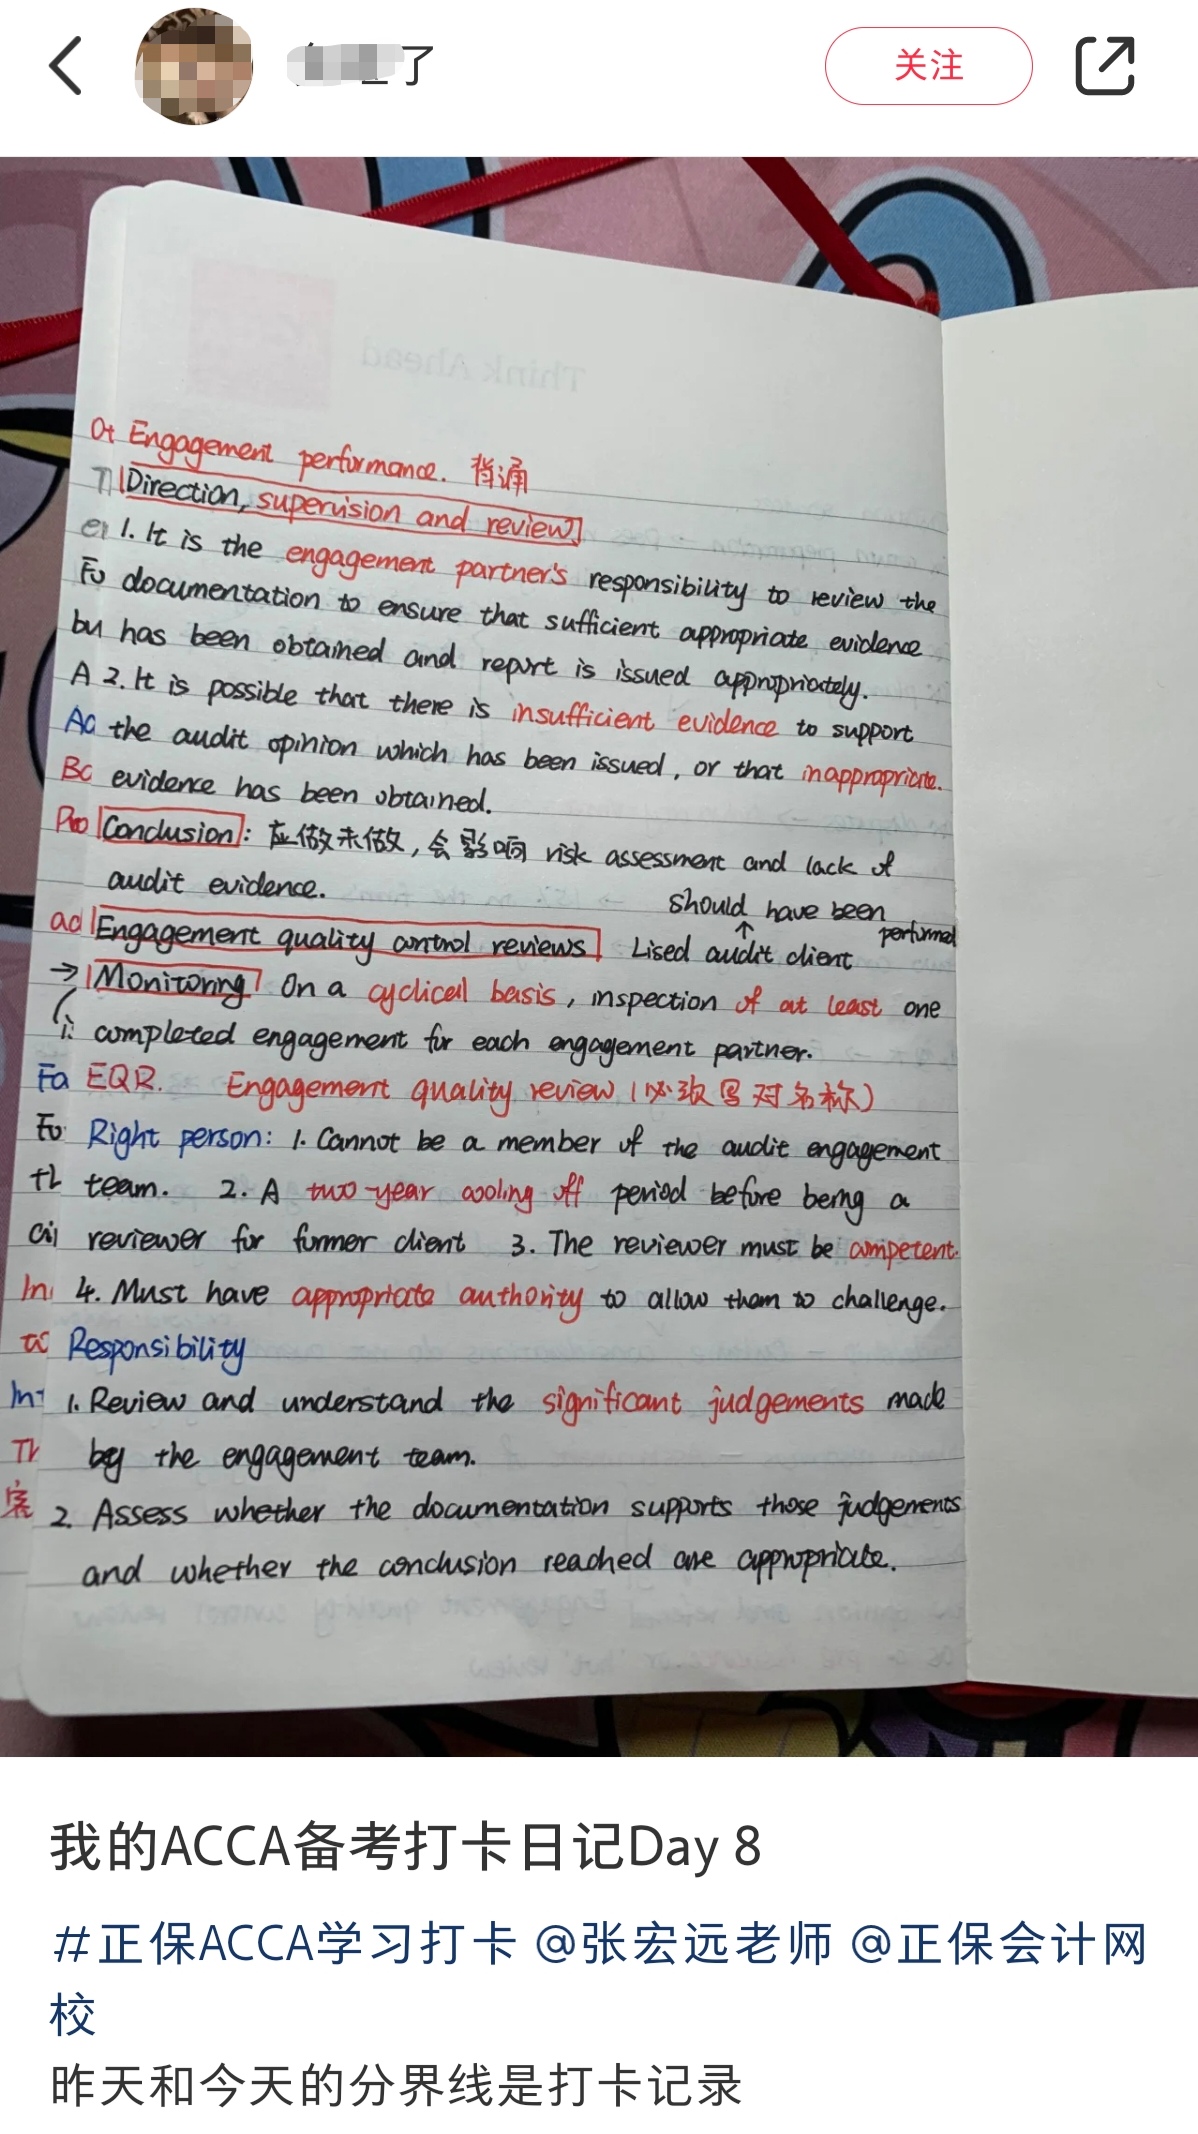 了
关注
Engagement performance. 背诵
Direction, supervision and review
1. It is the engagement partner's responsibility to review the
documentation to ensure that sufficient appropriate evidence
has been obtained and report is issued appropriately.
2. It is possible that there is insufficient evidence to support
the audit opinion which has been issued, or that inappropriate.
evidence has been obtained.
Conclusion: 应做未做, 会影响 risk assessment and lack of
audit evidence.
should have been performed
Engagement quality control reviews Lised audit client
→ Monitoring On a cyclical basis, inspection of at least one
completed engagement for each engagement partner.
EQR. Engagement quality review (必须写对名称)
Right person: 1. Cannot be a member of the audit engagement
team. 2. A two-year cooling off period before being a
reviewer for former client 3. The reviewer must be competent.
4. Must have appropriate authority to allow them to challenge.
Responsibility
1. Review and understand the significant judgements made
by the engagement team.
2. Assess whether the documentation supports those judgements
and whether the conclusion reached are appropriate.
我的ACCA备考打卡日记Day 8
#正保ACCA学习打卡 @张宏远老师 @正保会计网
校
昨天和今天的分界线是打卡记录